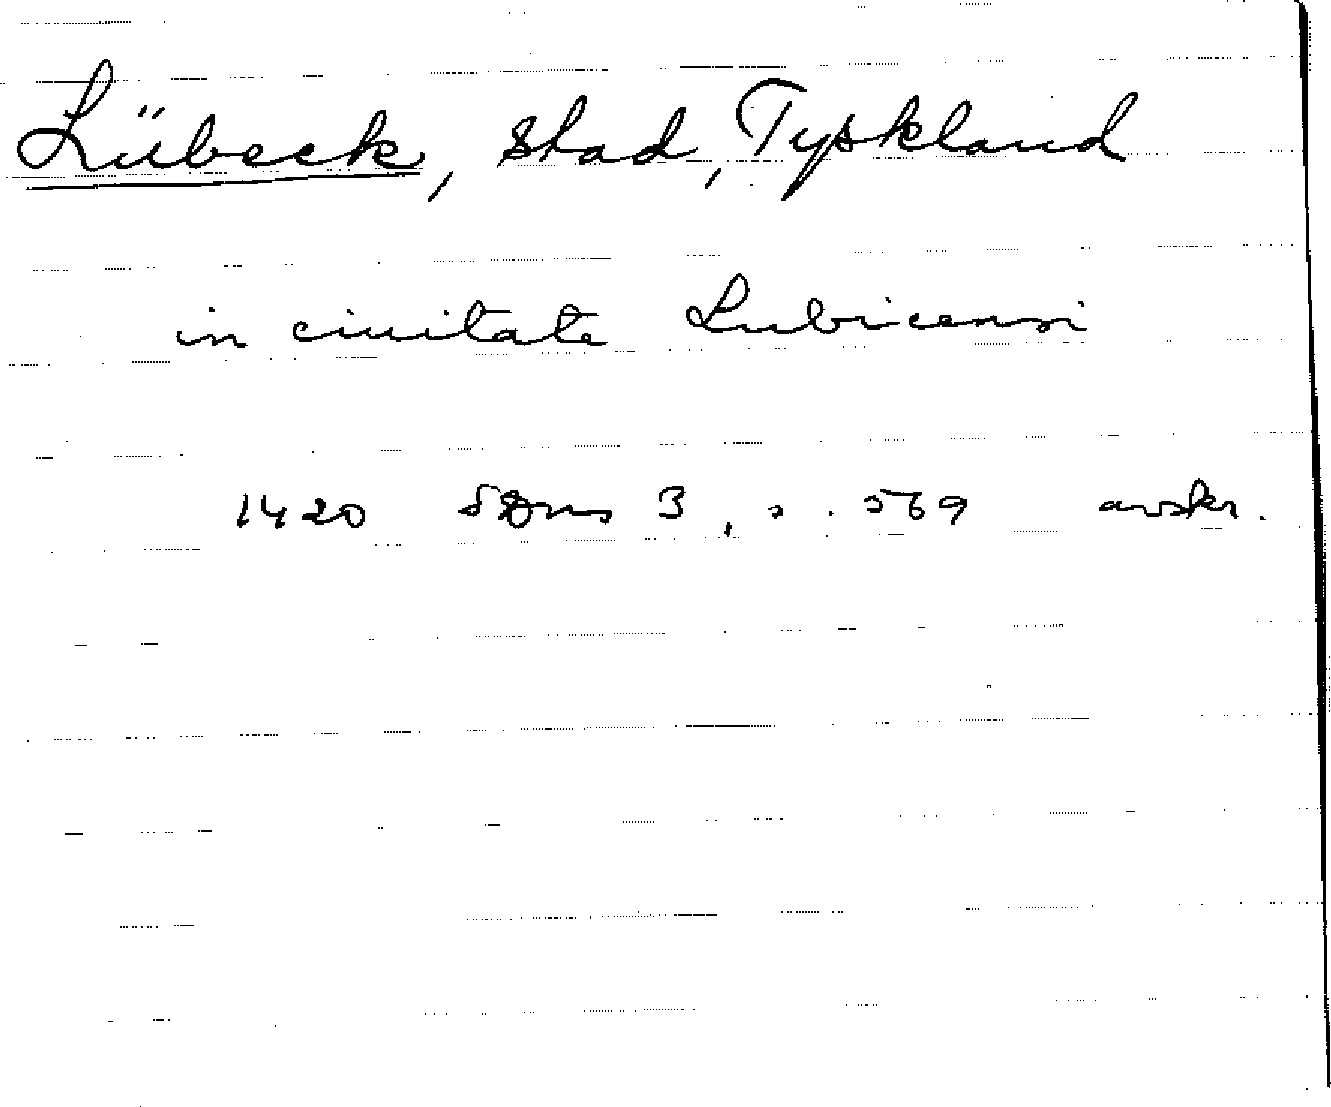 Lübeck, stad, Tyskland
in ciuitate Lubicensi
1420 SDns 3, s. 569 avskr.